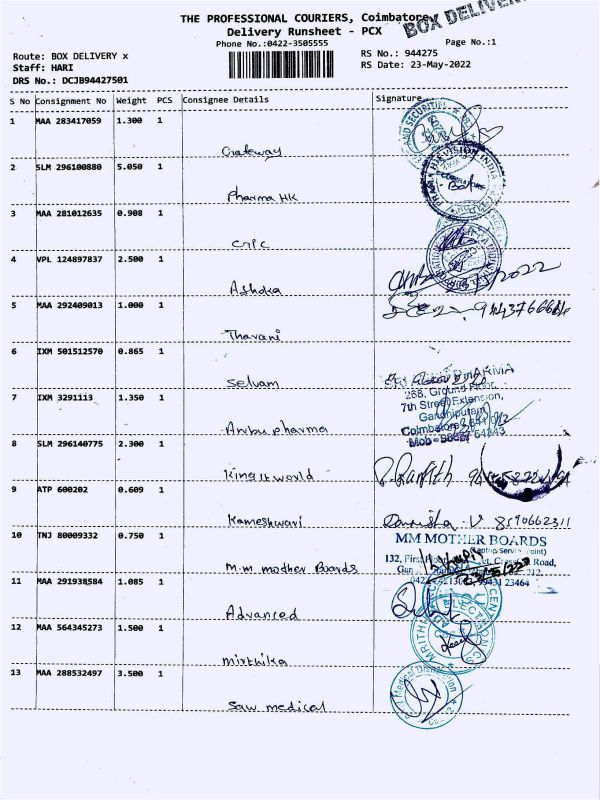 THE PROFESSIONAL COURIERS, Coimbatore
BOX DELIVERY
Delivery Runsheet - PCX
Phone No.:0422-3505555
Page No.:1
Route: BOX DELIVERY x
RS No.: 944275
Staff: HARI
RS Date: 23-May-2022
DRS No.: DCJB94427501
S No Consignment No Weight PCS Consignee Details Signature
1 MAA 283417059 1.300 1
Gateway
2 SLM 296100880 5.050 1
Pharma HK
3 MAA 281012635 0.908 1
CIPC
4 VPL 124897837 2.500 1
Ashoka
5 MAA 292409013 1.000 1
Tharani
6 IXM 501512570 0.865 1
Selvam
7 IXM 3291113 1.350 1
268, Ground Floor,
7th Street Extension,
Gandhipuram
Anbu pharma
Coimbatore
8 SLM 296140775 2.300 1
King it world
9 ATP 600202 0.609 1
Kameshwari
V 8590662311
10 TNJ 80009332 0.750 1
MM MOTHER BOARDS
M.M. mother Boards
11 MAA 291938584 1.085 1
Advanced
12 MAA 564345273 1.500 1
mirthika
13 MAA 288532497 3.500 1
Saw medical